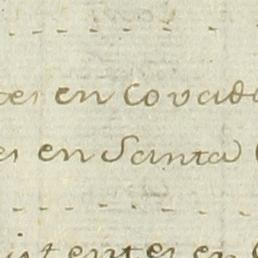 tes en Covad
es en Santa
istentes en